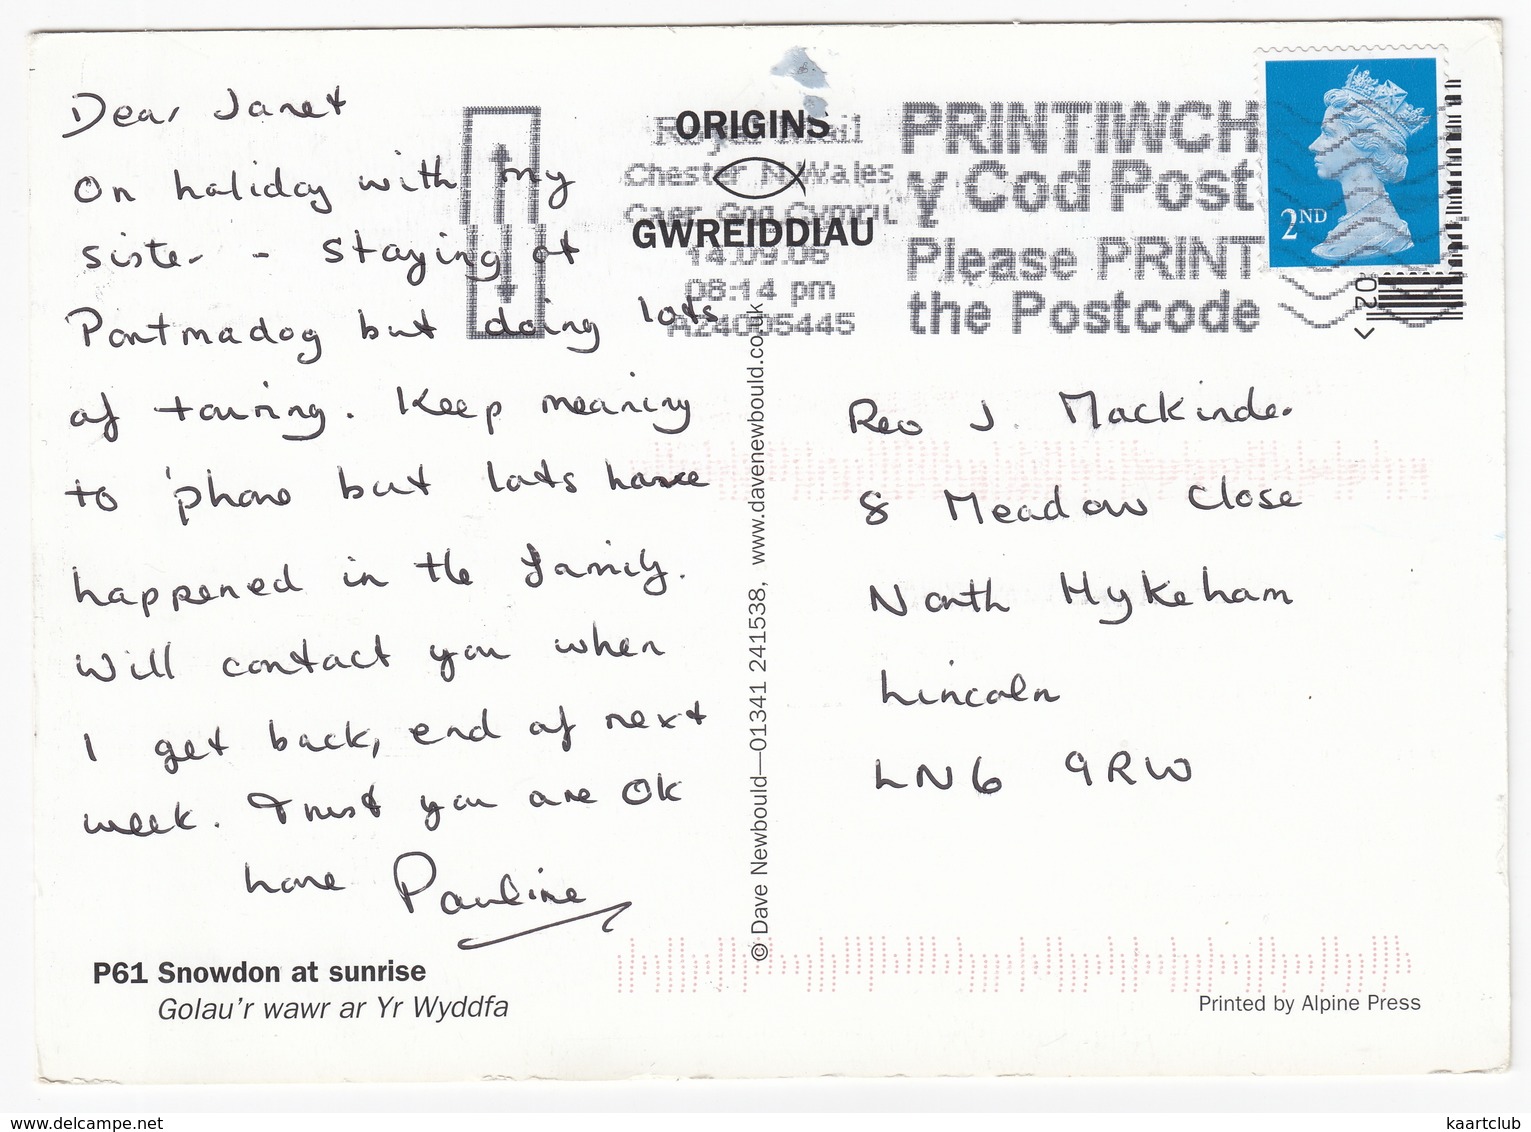 Dear Janet
On holiday with my
sister - staying at
Portmadog but doing lots
of touring. Keep meaning
to 'phone but lots have
happened in the family.
Will contact you when
I get back, end of next
week. Trust you are OK
Love Pauline
P61 Snowdon at sunrise
Golau'r wawr ar Yr Wyddfa
ORIGINS
GWREIDDIAU
Royal Mail
Chester N Wales
Caer Gog Cymru
14.09.06
08:14 pm
A24005445
PRINTIWCH
y Cod Post
Please PRINT
the Postcode
2ND
© Dave Newbould—01341 241538, www.davenewbould.co.uk
Rev J. Mackinder
8 Meadow Close
North Hykeham
Lincoln
LN6 9RW
Printed by Alpine Press
www.delcampe.net
kaartclub